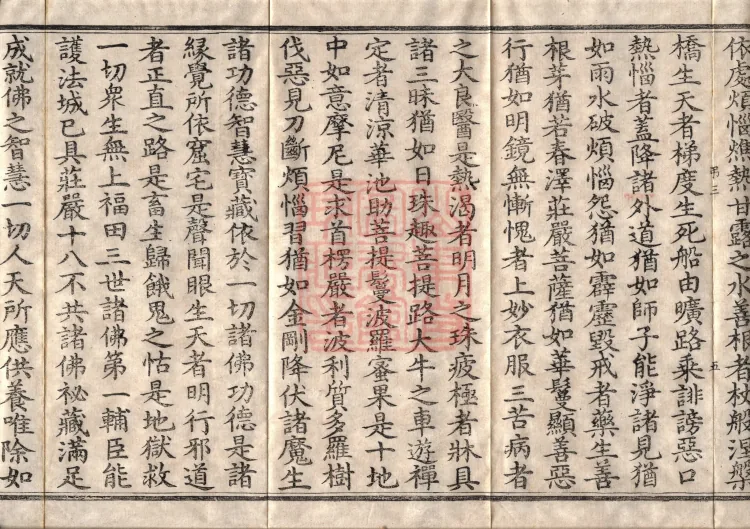 依處煩惱燋熱甘露之水善根者杖般涅槃
橋生天者梯度生死船由曠路乘誹謗惡口
弔三 五
熱惱者蓋降諸外道猶如師子能淨諸見猶
如雨水破煩惱怨猶如霹靂毀戒者藥生善
根芽猶若春澤莊嚴菩薩猶如華鬘顯善惡
行猶如明鏡無慚愧者上妙衣服三苦病者
之大良醫是熱渴者明月之珠疲極者牀具
諸三昧猶如日珠趣菩提路大牛之車遊禪
定者清涼華池助菩提鬘波羅蜜果是十地
中如意摩尼是求首楞嚴者波利質多羅樹
伐惡見刀斷煩惱習猶如金剛降伏諸魔生
諸功德智慧寶藏依於一切諸佛功德是諸
緣覺所依窟宅是聲聞眼生天者明行邪道
者正直之路是畜生歸餓鬼之怙是地獄救
一切衆生無上福田三世諸佛第一輔臣能
護法城已具莊嚴十八不共諸佛祕藏滿足
成就佛之智慧一切人天所應供養唯除如